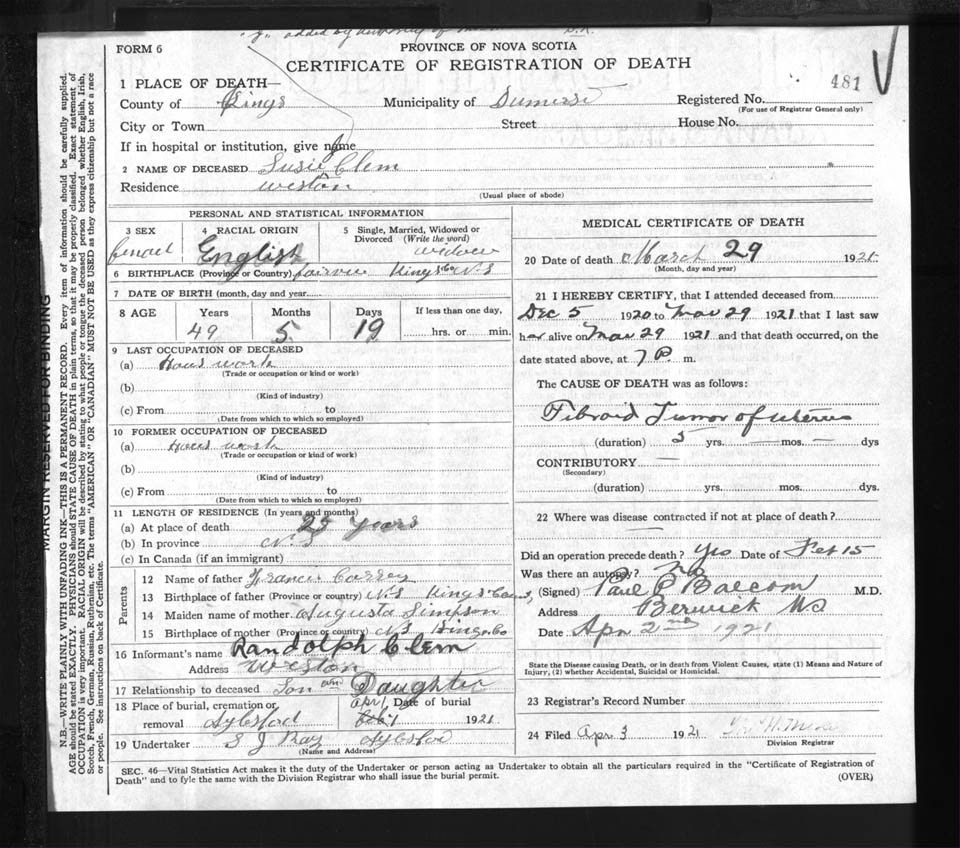 "J" added by authority of
FORM 6
PROVINCE OF NOVA SCOTIA
CERTIFICATE OF REGISTRATION OF DEATH
481
1 PLACE OF DEATH—
County of Kings Municipality of Registered No.
(For use of Registrar General only)
City or Town Street House No.
If in hospital or institution, give name
J
2 NAME OF DECEASED Susie Clem
Residence Weston
(Usual place of abode)
PERSONAL AND STATISTICAL INFORMATION
3 SEX 4 RACIAL ORIGIN 5 Single, Married, Widowed or Divorced (Write the word)
English
6 BIRTHPLACE (Province or Country) Kings Co N.S
7 DATE OF BIRTH (month, day and year
8 AGE Years Months Days If less than one day,
49 5 19 hrs. or min.
9 LAST OCCUPATION OF DECEASED
(a) Hous work
(Trade or occupation or kind or work)
(b)
(Kind of industry)
(c) From to
(Date from which to which so employed)
10 FORMER OCCUPATION OF DECEASED
(a) Hous work
(Trade or occupation or kind of work)
(b)
(Kind of industry)
(c) From to
(Date from which to which so employed)
11 LENGTH OF RESIDENCE (In years and months)
(a) At place of death 25 years
(b) In province N.S
(c) In Canada (if an immigrant)
Parents
12 Name of father Francis
13 Birthplace of father (Province or country) N.S Kings County
14 Maiden name of mother Augusta Simpson
15 Birthplace of mother (Province or country) N.S Kings Co
16 Informant's name Randolph Clem
Address Weston
17 Relationship to deceased Son Daughter
18 Place of burial, cremation or removal Aylesford Date of burial Apr 1 1921
19 Undertaker S J Ray
(Name and Address)
MEDICAL CERTIFICATE OF DEATH
20 Date of death March 29 1921
(Month, day and year)
21 I HEREBY CERTIFY, that I attended deceased from
Dec 5 1920 to Mar 29 1921 that I last saw
her alive on Mar 29 1921 and that death occurred, on the
date stated above, at 7 P. m.
The CAUSE OF DEATH was as follows:
Fibroid Tumor of Uterus
(duration) 5 yrs. — mos. — dys
CONTRIBUTORY —
(Secondary)
(duration) yrs. mos. dys.
22 Where was disease contracted if not at place of death?
—
Did an operation precede death? Yes Date of Feb 15
Was there an autopsy? No
(Signed) Paul P Balcom M.D.
Address Berwick NS
Date Apr 2nd 1921
State the Disease causing Death, or in death from Violent Causes, state (1) Means and Nature of
Injury, (2) whether Accidental, Suicidal or Homicidal.
23 Registrar's Record Number
24 Filed Apr 3 1921
Division Registrar
SEC. 46—Vital Statistics Act makes it the duty of the Undertaker or person acting as Undertaker to obtain all the particulars required in the "Certificate of Registration of
Death" and to fyle the same with the Division Registrar who shall issue the burial permit.
(OVER)
MARGIN RESERVED FOR BINDING
N.B.—WRITE PLAINLY WITH UNFADING INK—THIS IS A PERMANENT RECORD. Every item of information should be carefully supplied.
AGE should be stated EXACTLY. PHYSICIANS should STATE CAUSE OF DEATH in plain terms, so that it may be properly classified. Exact statement of
OCCUPATION is very important. RACIAL ORIGIN will be described by stating to what people or tongue the deceased person belonged whether English, Irish,
Scotch, French, German, Russian, Ruthenian, etc. The terms "AMERICAN" OR "CANADIAN" MUST NOT BE USED as they express citizenship but not a race
or people. See instructions on back of Certificate.